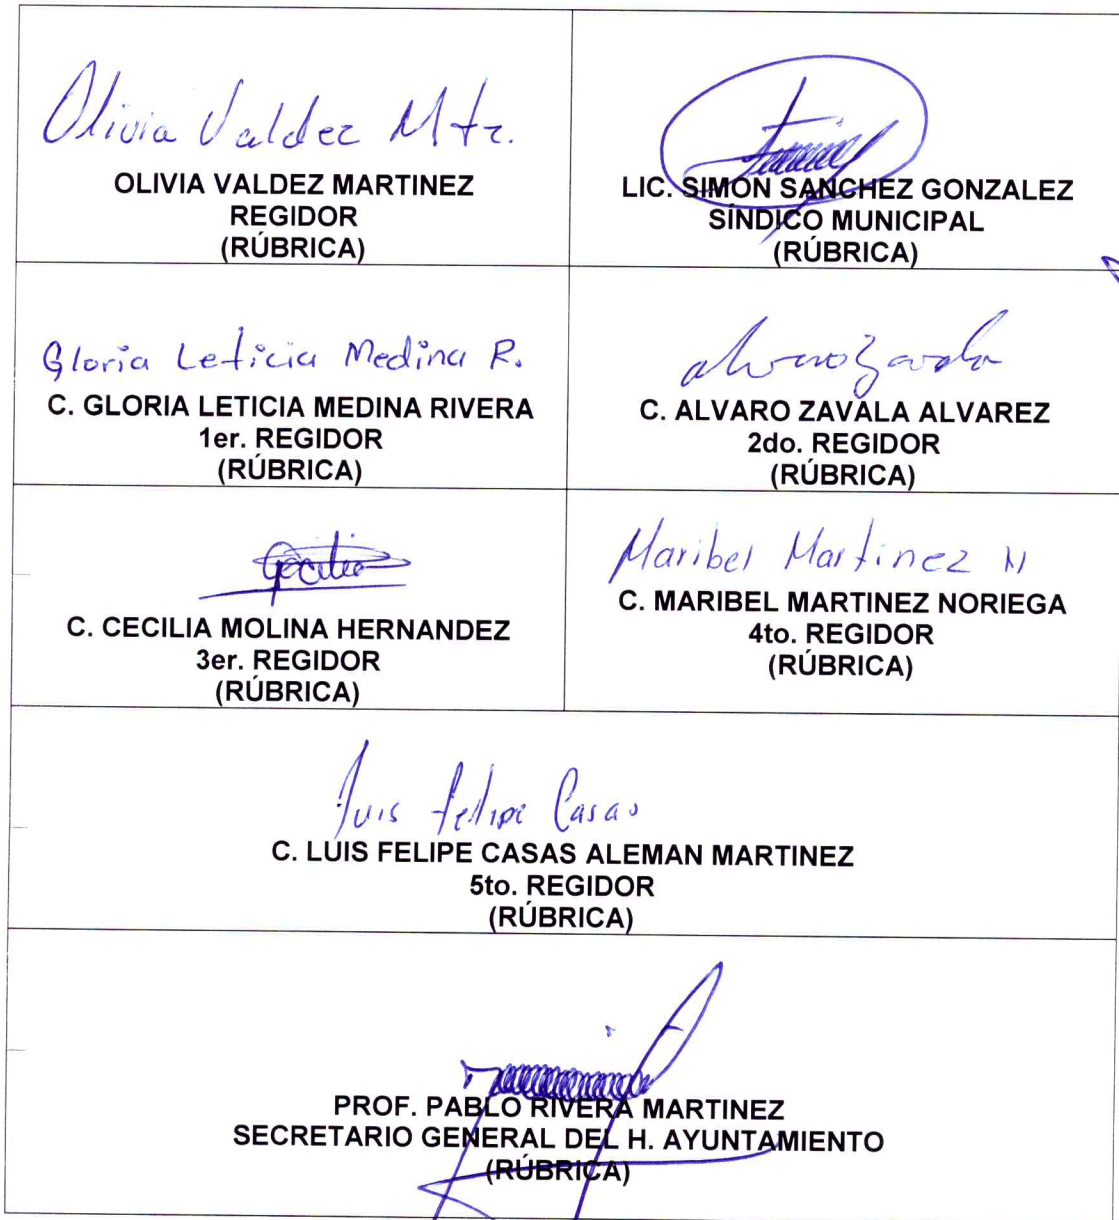 Olivia Valdez Mtz.
OLIVIA VALDEZ MARTINEZ
REGIDOR
(RÚBRICA)
LIC. SIMON SANCHEZ GONZALEZ
SÍNDICO MUNICIPAL
(RÚBRICA)
Gloria Leticia Medina R.
C. GLORIA LETICIA MEDINA RIVERA
1er. REGIDOR
(RÚBRICA)
alvaro Zavala
C. ALVARO ZAVALA ALVAREZ
2do. REGIDOR
(RÚBRICA)
Cecilia
C. CECILIA MOLINA HERNANDEZ
3er. REGIDOR
(RÚBRICA)
Maribel Martinez N
C. MARIBEL MARTINEZ NORIEGA
4to. REGIDOR
(RÚBRICA)
Luis Felipe Casas
C. LUIS FELIPE CASAS ALEMAN MARTINEZ
5to. REGIDOR
(RÚBRICA)
PROF. PABLO RIVERA MARTINEZ
SECRETARIO GENERAL DEL H. AYUNTAMIENTO
(RÚBRICA)